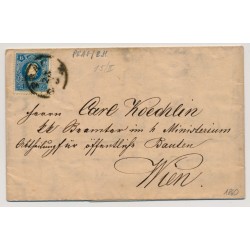 15 I
Herrn Carl Koechlin
k k Beamter im k Ministerium
Abtheilung für öffentliche Bauten
Wien
1860